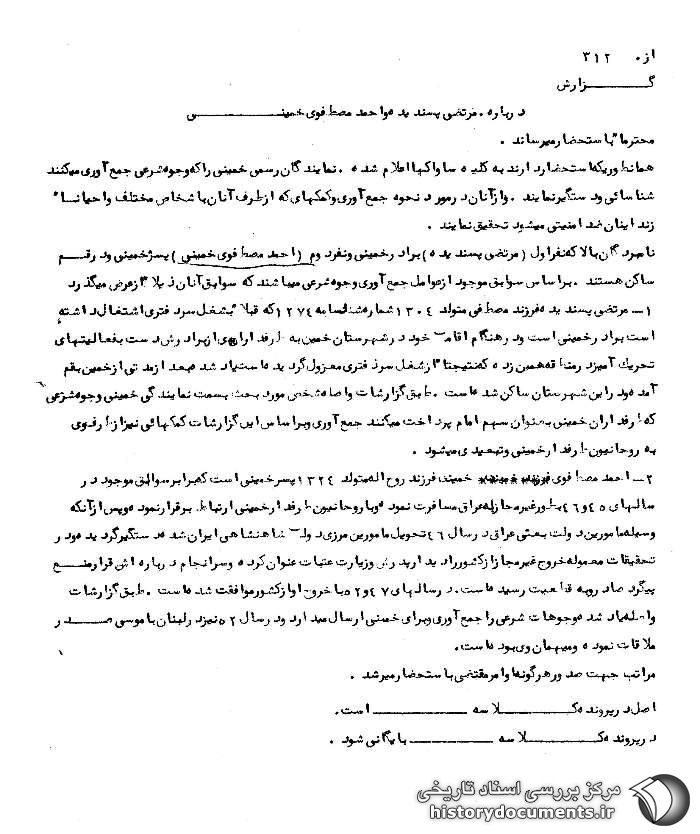 از ۰ ۳۱۲
گــــــزارش
درباره . مرتضی پسندیده و احمد مصطفوی خمینــــــی
محترما" باستحضار میرساند .
همانطوریکه استحضار دارند به کلیه ساواکها اعلام شده . نمایندگان رسمی خمینی را که وجوه شرعی جمع آوری میکنند
شناسائی و دستگیر نمایند . و از آنان در مورد نحوه جمع آوری و کمکهای که از طرف آنان با شخاص مختلف و احیانا"
زندانیان ضد امنیتی میشود تحقیق نمایند .
نامبردگان بالا که نفر اول ( مرتضی پسندیده ) برادر خمینی و نفر دوم ( احمد مصطفوی خمینی ) پسر خمینی و در قــم
ساکن هستند . براساس سوابق موجود از عوامل جمع آوری وجوه شرعی میباشند که سوابق آنان ذیلا" از عرض میگذرد
۱ــ مرتضی پسندیده فرزند مصطفی متولد ۱۳۰۴ شماره شناسنامه ۱۲۷۴ که قبلا" بشغل سردفتری اشتغال داشته
است برادر خمینی است و در هنگام اقامت خود در شهرستان خمین به طرفداری از برادرش دست بفعالیتهای
تحریک آمیز در منطقه خمین زده که نتیجتا" از شغل سردفتری معزول گردیده است یاد شده بعد از مدتی از خمین بقم
آمده و در این شهرستان ساکن شده است . طبق گزارشات واصله شخص مورد بحث بسمت نمایندگی خمینی وجوه شرعی
که طرفداران خمینی بعنوان سهم امام پرداخت میکنند جمع آوری و براساس این گزارشات کمکهائی نیز از طرف وی
به روحانیون طرفدار خمینی و تبعیدی میشود .
۲ــ احمد مصطفوی خمینی فرزند روح اله متولد ۱۳۲۴ پسر خمینی است که برابر سوابق موجود در
سالهای ۴۵ و ۴۶ بطور غیر مجاز به عراق مسافرت نموده و با روحانیون طرفدار خمینی ارتباط برقرار نموده و پس از آنکه
وسیله مامورین دولت بعثی عراق در سال ۴۶ تحویل مامورین مرزی دولت شاهنشاهی ایران شده دستگیر گردیده و در
تحقیقات معموله خروج غیر مجاز از کشور را دیدار پدرش و زیارت عتبات عنوان کرده و سرانجام درباره اش قرار منــع
پیگرد صادر و به قطعیت رسیده است. در سالهای ۴۷ و ۵۲ با خروج او از کشور موافقت شده است . طبق گزارشات
واصله یاد شده وجوهات شرعی را جمع آوری و برای خمینی ارسال میدارد و در سال ۵۲ نیز در لبنان با موسی صــدر
ملاقات نموده و میهمان وی بوده است.
مراتب جهت صدور هرگونه اوامر مقتضی باستحضار میرسد .
اصل در پرونده کــــــلاسه ــــــــــ است .
در پرونده کــــــلاسه ــــــــــ بایگانی شود .
مرکز بررسی اسناد تاریخی
historydocuments.ir